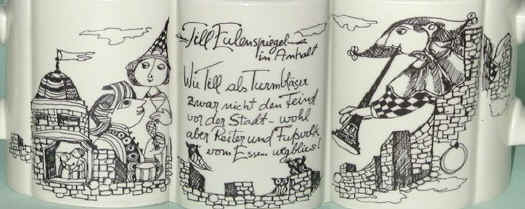 Till Eulenspiegel
in Anhalt
Wie Till als Turmbläser
zwar nicht den Feind
vor der Stadt - wohl
aber Reiter und Fußvolk
vom Essen wegblies!